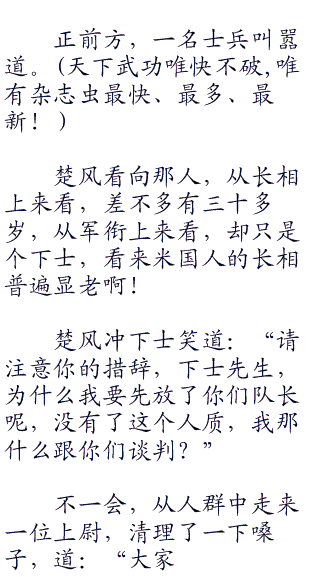 正前方，一名士兵叫嚣
道。(天下武功唯快不破,唯
有杂志虫最快、最多、最
新！)
楚风看向那人，从长相
上来看，差不多有三十多
岁，从军衔上来看，却只是
个下士，看来米国人的长相
普遍显老啊！
楚风冲下士笑道：“请
注意你的措辞，下士先生，
为什么我要先放了你们队长
呢，没有了这个人质，我那
什么跟你们谈判？”
不一会，从人群中走来
一位上尉，清理了一下嗓
子，道：“大家